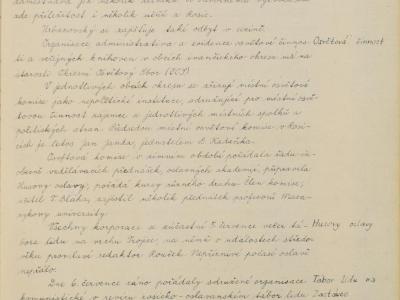 zaměstnává
ade příležitost i několik učňů z Rosic.
Urbanovský se zajišťuje také odbyt v cizině.
Organisace administrativa a evidence osvětové činnos- Osvětová činnost
ti a veřejných knihoven v obcích ivančického okresu má na
starosti Okresní Osvětový Sbor (OOS)
V jednotlivých obcích okresu se zřizují místní osvětové
komise jako nepolitické instituce, sdružující pro místní osvě-
tovou činnost zájemce z jednotlivých místních spolků a
politických stran. Předsedou místní osvětové komise v Rosi-
cích je letos Jan Janda, jednatelem B. Kadeřka.
Osvětová komise v zimním období pořádala řadu zá-
bavně vzdělávacích přednášek, oslavných akademií, připravila
Husovy oslavy, pořádá kursy různého druhu. Člen komise,
učitel T. Bláha, zajistil několik přednášek profesorů Masa-
rykovy university.
Všechny korporace se zúčastní 5. července večer tá- Husovy oslavy
bora lidu na vrchu Trojici, na němž o událostech středo-
věku promluví redaktor Kouřek. Nepříznivé počasí oslavě
nepřálo.
Dne 6. července ráno pořádaly sdružené organisace Tábor lidu na
komunistické v revíru rosicko-oslavanském tábor lidu Zastávce